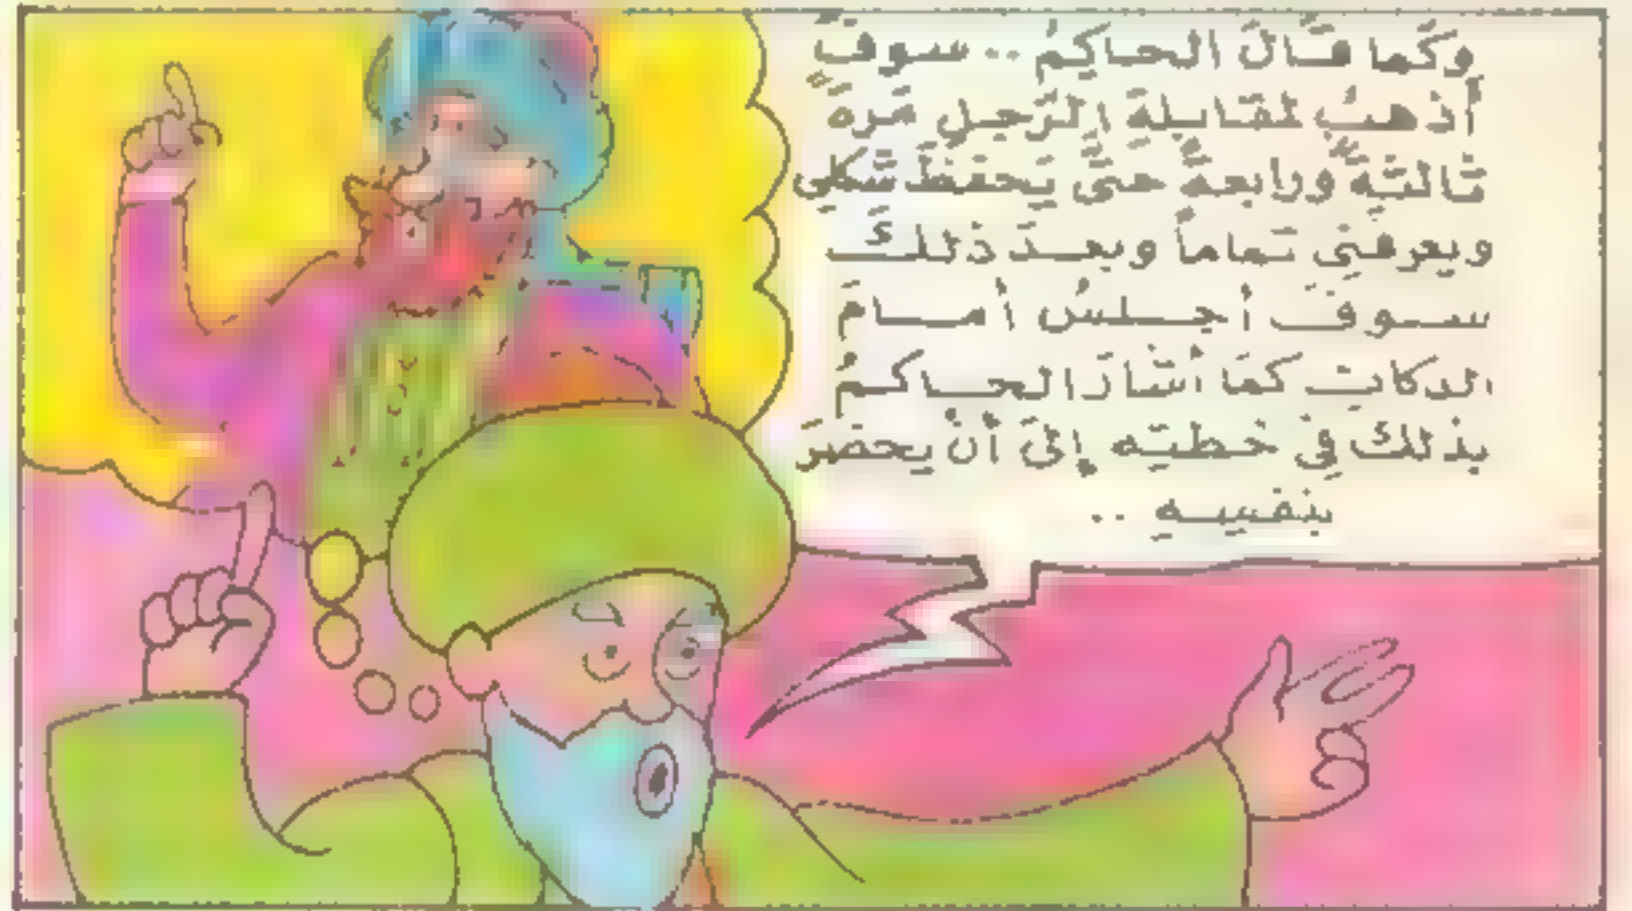 وكَما قَالَ الحاكِمُ .. سوفَ
أذهبُ لمقابلةِ الرَّجلِ مَرةً
ثالثةً ورابعةً حتىَّ يَحفظَ شكلي
ويعرفَني تماماً وبعدَ ذلكَ
سوفَ أجلسُ أمامَ
الدكانِ كمَا أشارَ الحاكمُ
بذلكَ في خطتِه إلىَ أنْ يحضرَ
بنفسِهِ ..